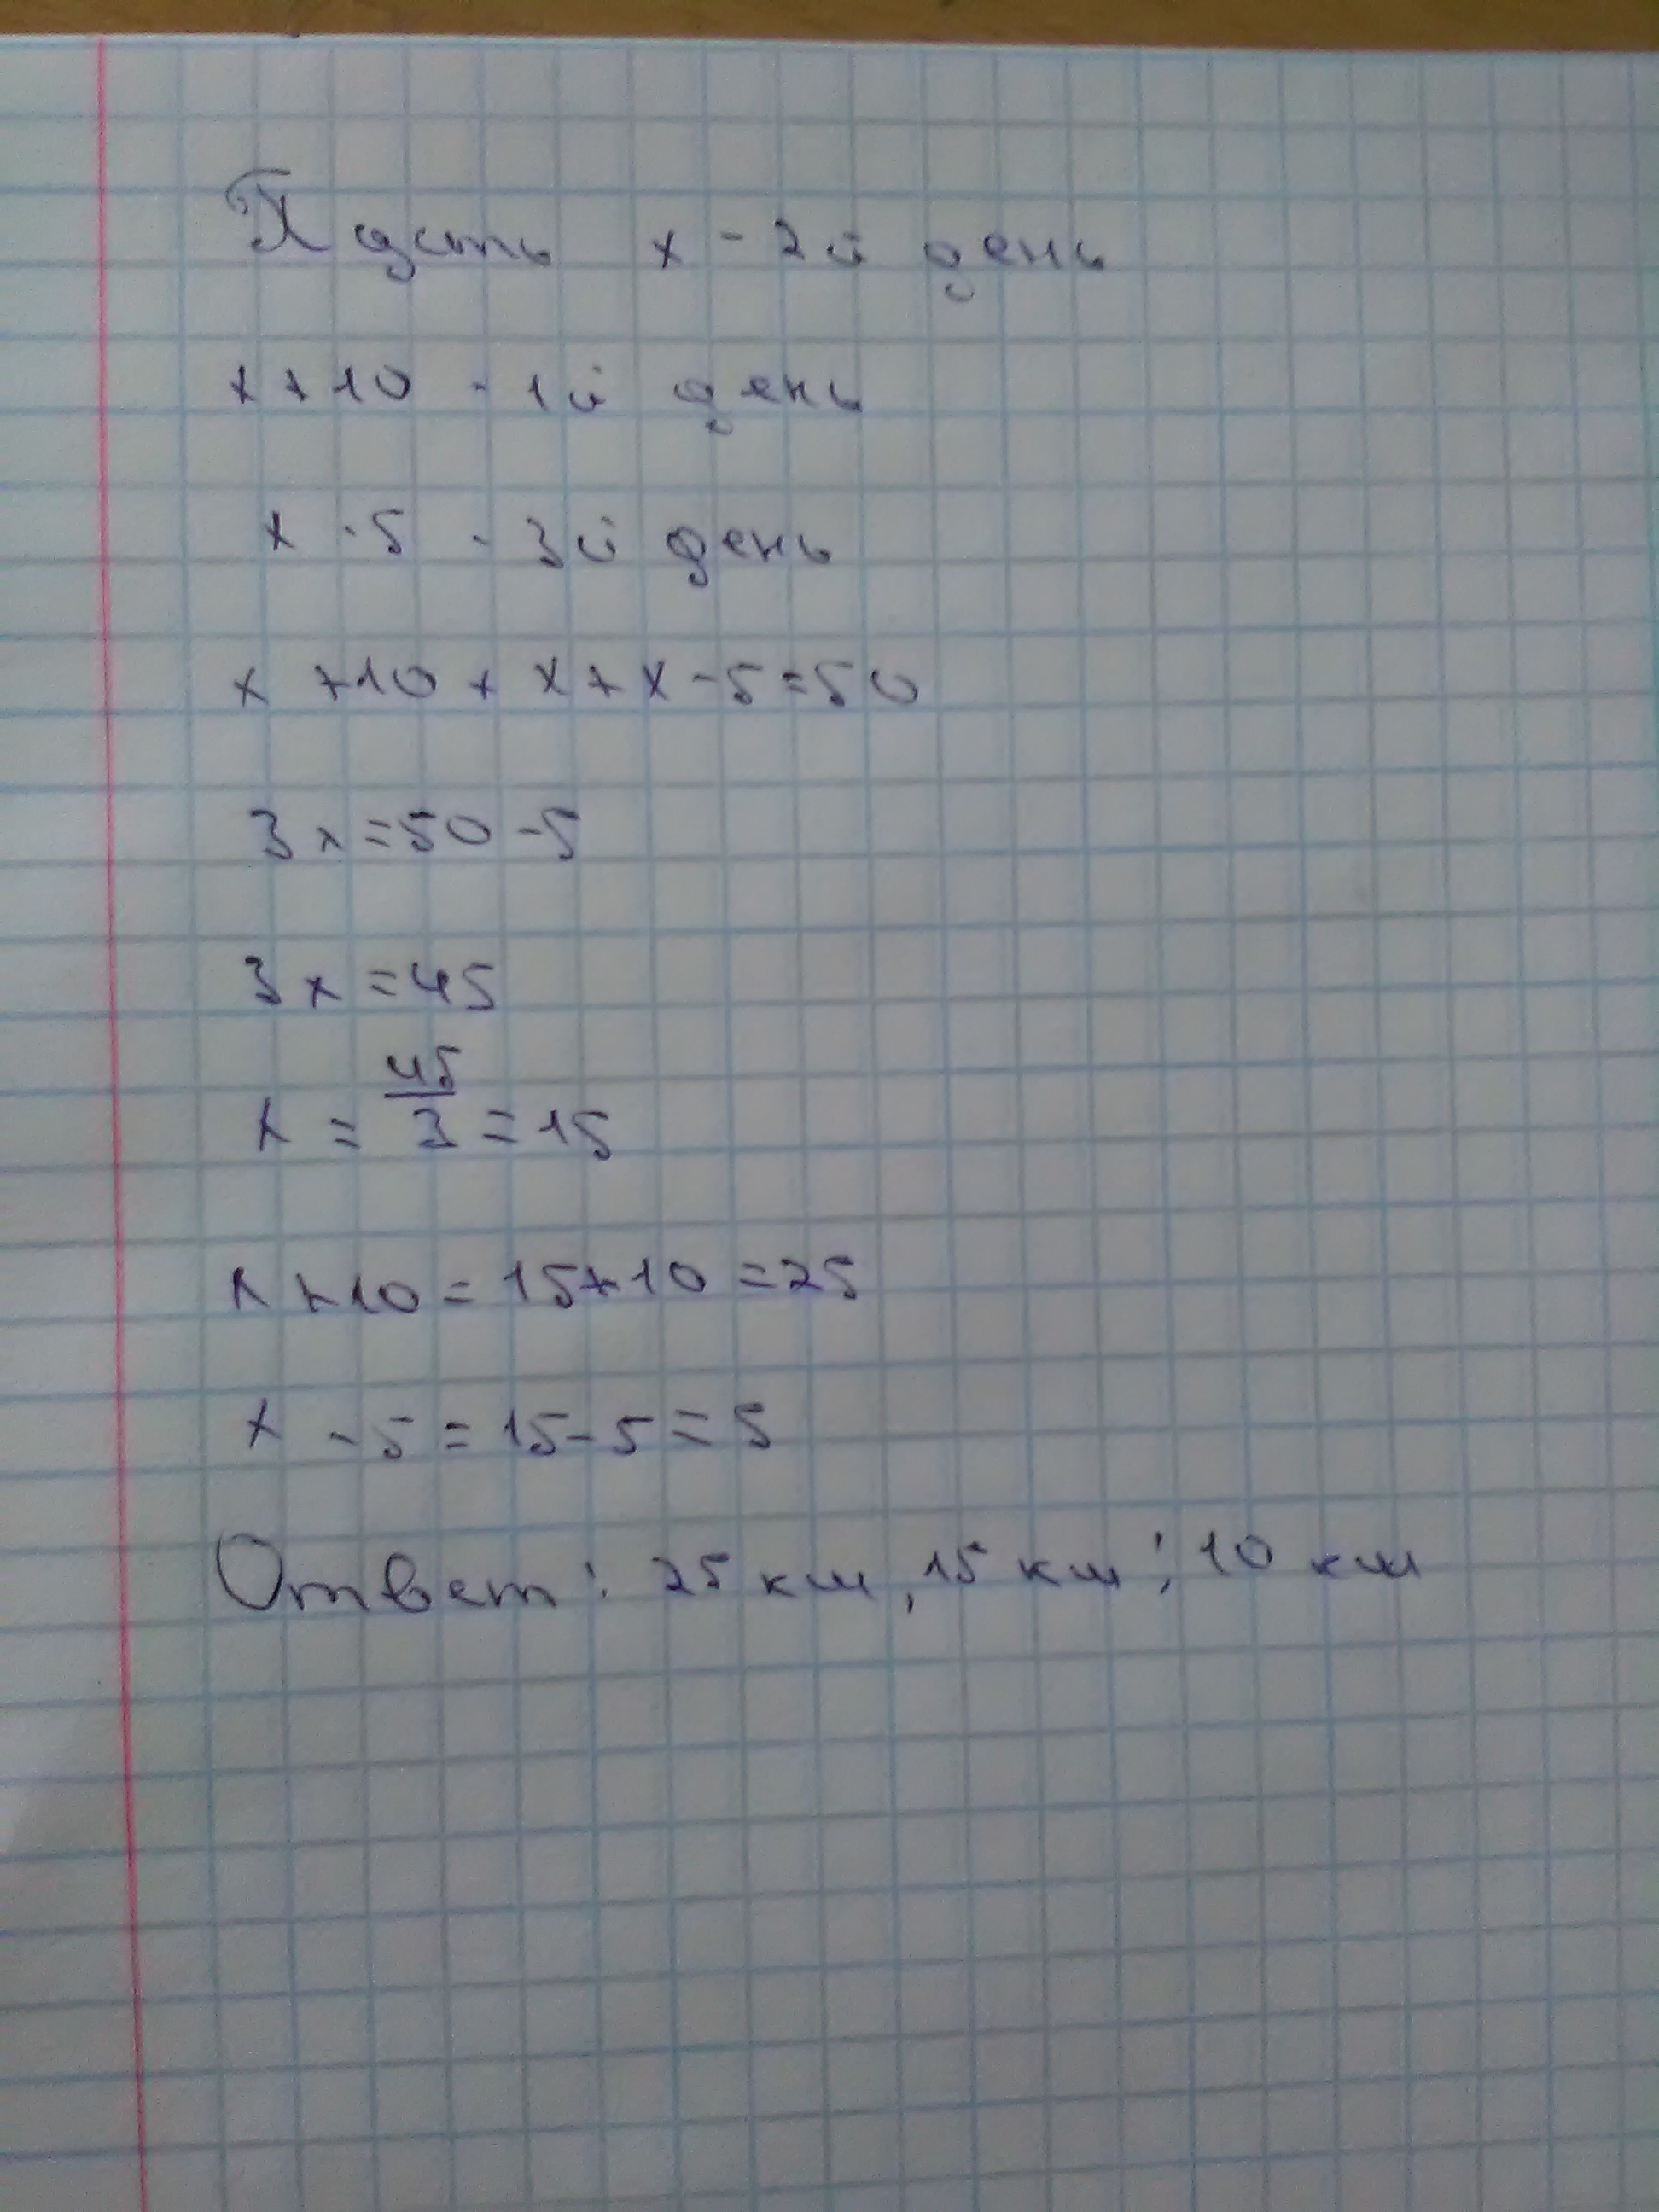 Пусть x - 2й день
x + 10 - 1й день
x - 5 - 3й день
x + 10 + x + x - 5 = 50
3x = 50 - 5
3x = 45
x = 45/3 = 15
x + 10 = 15 + 10 = 25
x - 5 = 15 - 5 = 5
Ответ: 25 км, 15 км; 10 км